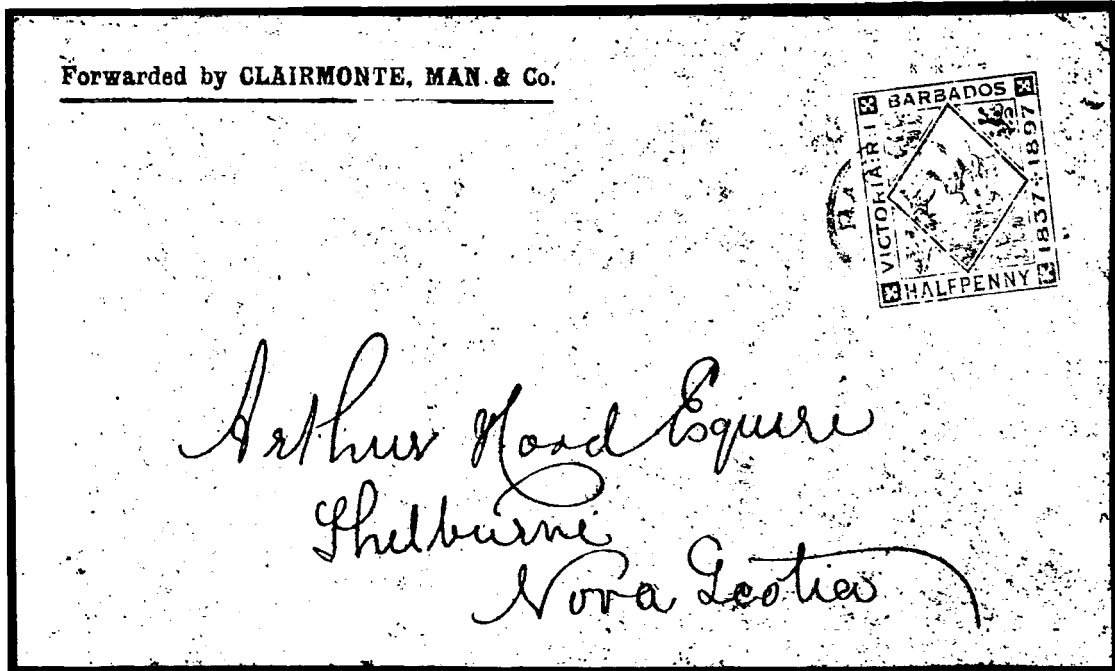 Forwarded by CLAIRMONTE, MAN & Co.
BARBADOS
VICTORIA R I
1837 1897
HALFPENNY
Arthur Hood Esquire
Shelburne
Nova Scotia